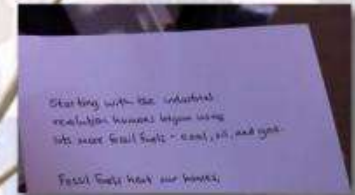 Starting with the industrial
revolution humans began using
lots more fossil fuels - coal, oil, and gas.
Fossil fuels heat our homes,